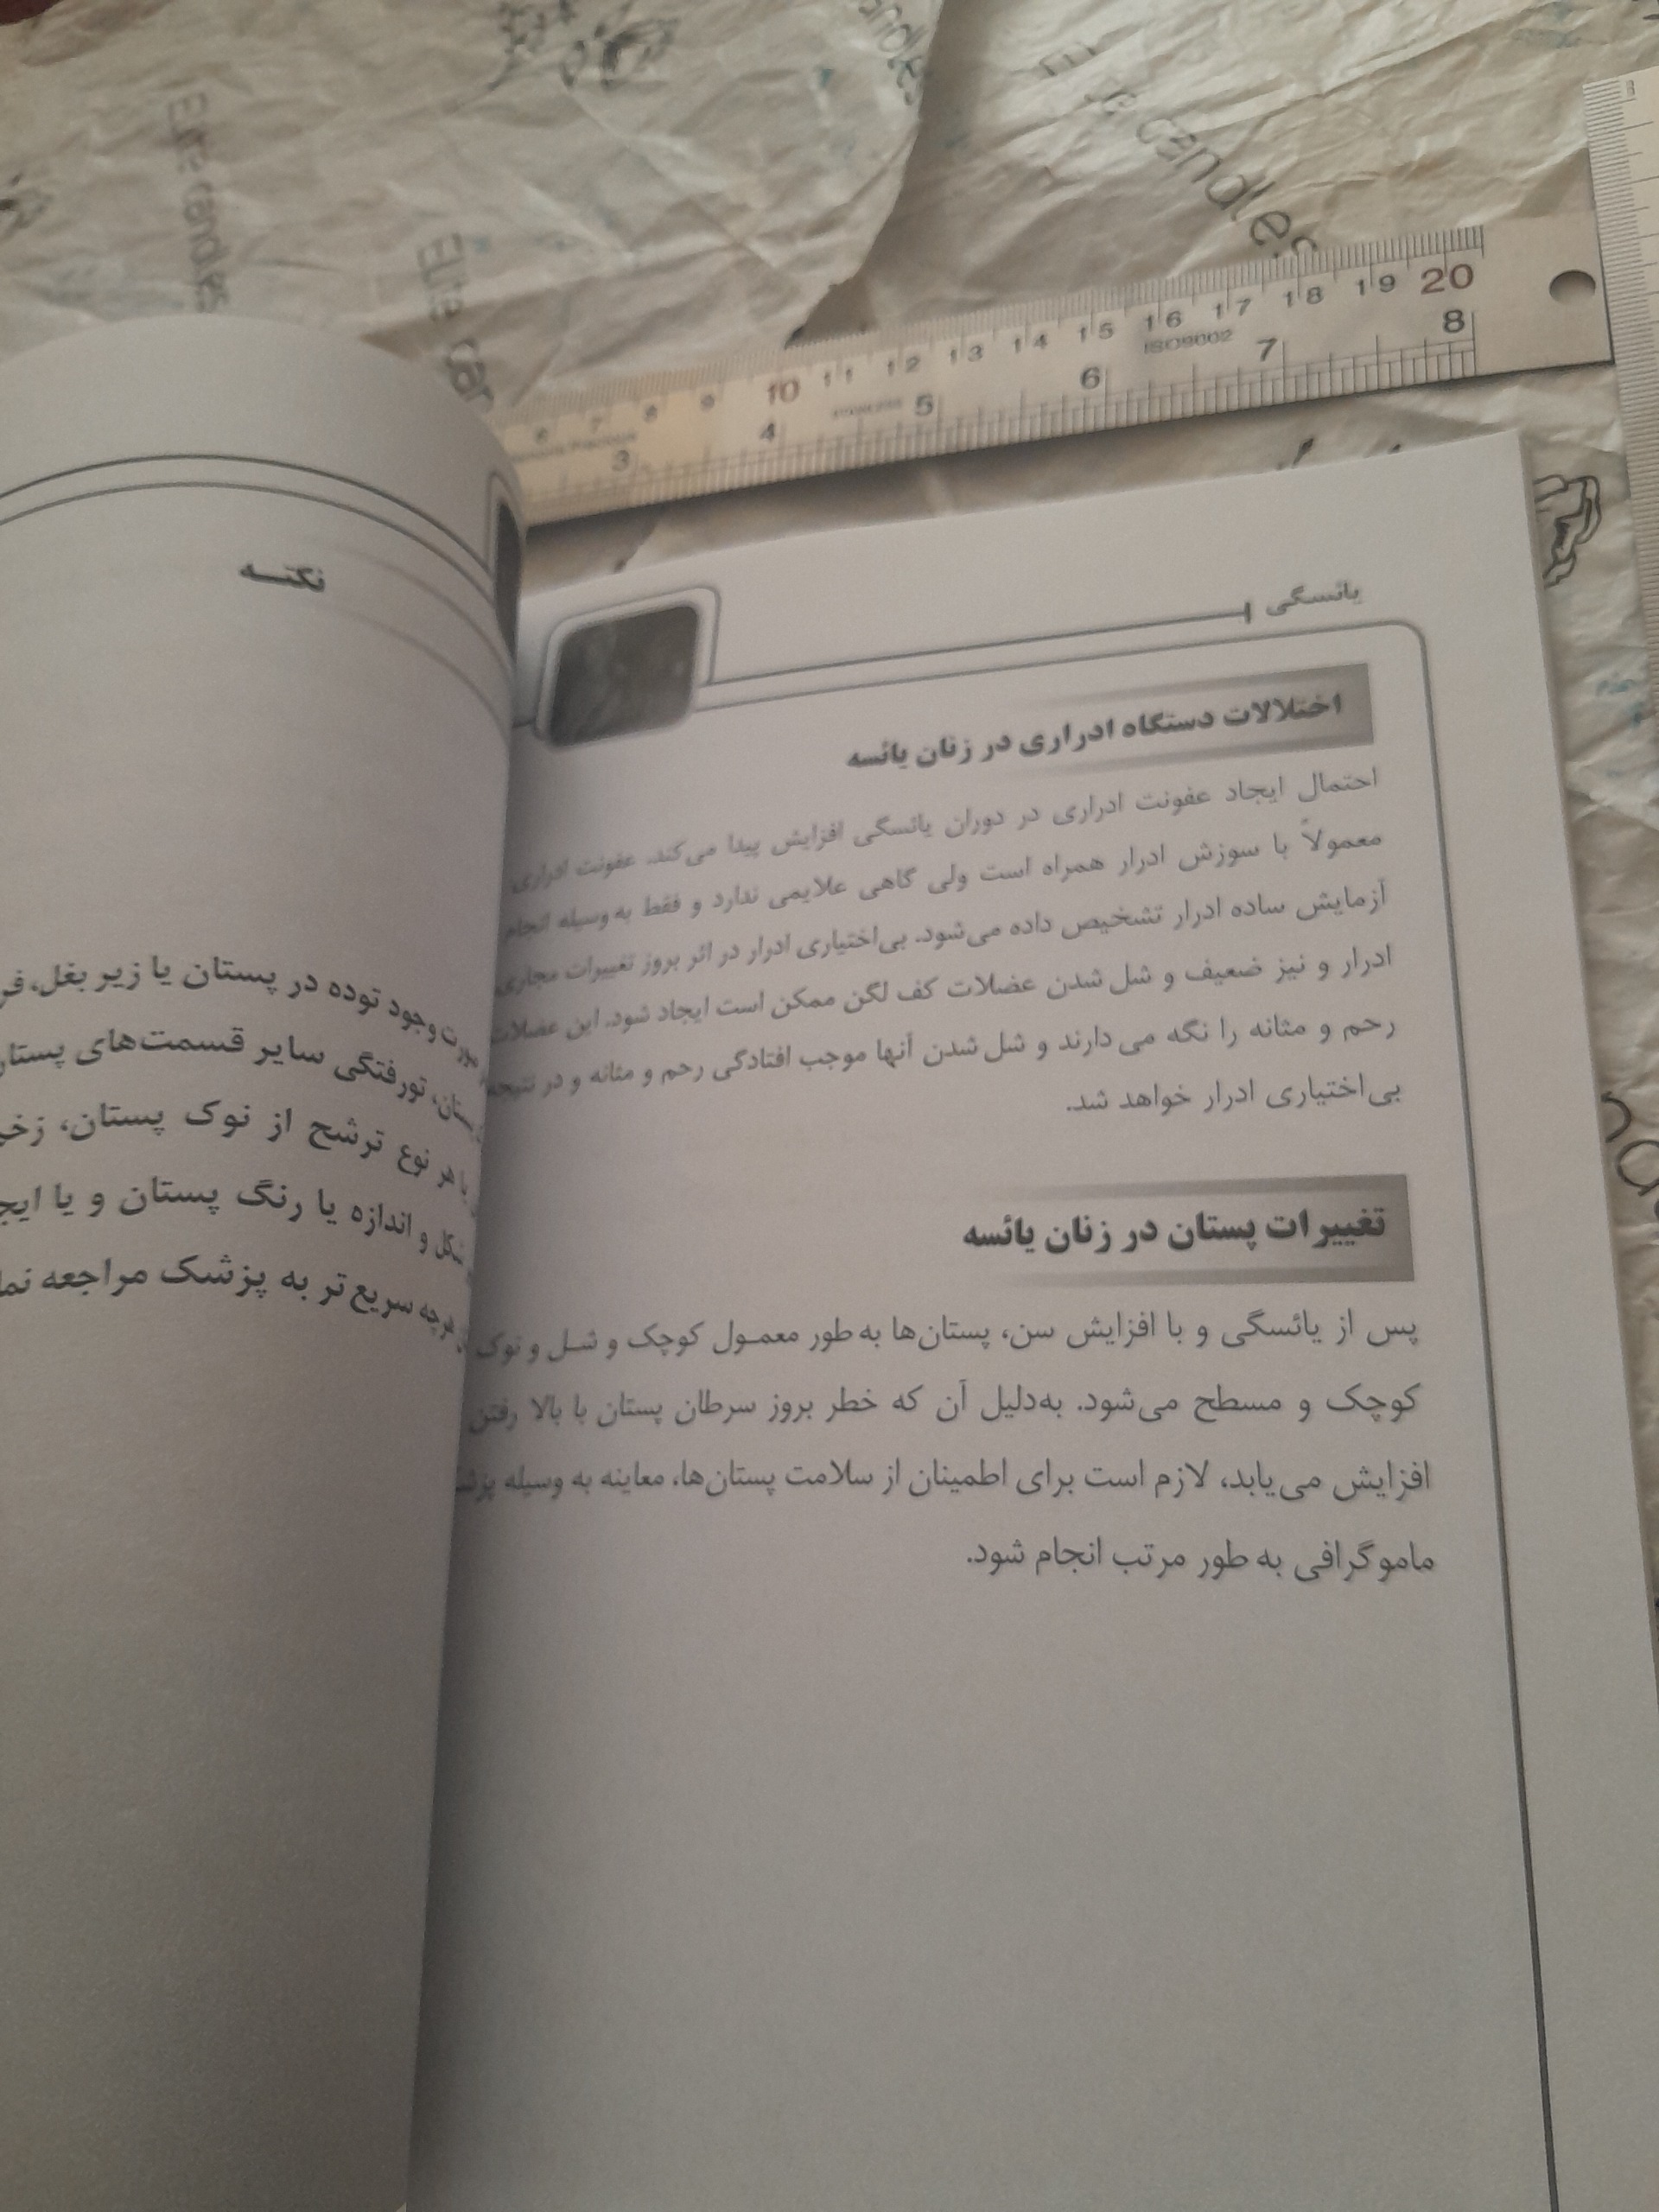 یائسگی
اختلالات دستگاه ادراری در زنان یائسه
احتمال ایجاد عفونت ادراری در دوران یائسگی افزایش پیدا می‌کند. عفونت ادراری
معمولاً با سوزش ادرار همراه است ولی گاهی علایمی ندارد و فقط به‌وسیله انجام
آزمایش ساده ادرار تشخیص داده می‌شود. بی‌اختیاری ادرار در اثر بروز تغییرات مجاری
ادرار و نیز ضعیف و شل شدن عضلات کف لگن ممکن است ایجاد شود. این عضلات
رحم و مثانه را نگه می‌دارند و شل شدن آنها موجب افتادگی رحم و مثانه و در نتیجه
بی‌اختیاری ادرار خواهد شد.
تغییرات پستان در زنان یائسه
پس از یائسگی و با افزایش سن، پستان‌ها به‌طور معمول کوچک و شل و نوک
کوچک و مسطح می‌شود. به‌دلیل آن که خطر بروز سرطان پستان با بالا رفتن
افزایش می‌یابد، لازم است برای اطمینان از سلامت پستان‌ها، معاینه به وسیله
ماموگرافی به طور مرتب انجام شود.
نکته
وجود توده در پستان یا زیر بغل،
تورفتگی سایر قسمت‌های
هر نوع ترشح از نوک پستان،
شکل و اندازه یا رنگ پستان و یا
هرچه سریع‌تر به پزشک مراجعه
Elite candles
Elite
candles
6 7 8 9 10 11 12 13 14 15 16 17 18 19 20
ISO9002
3 4 5 6 7 8